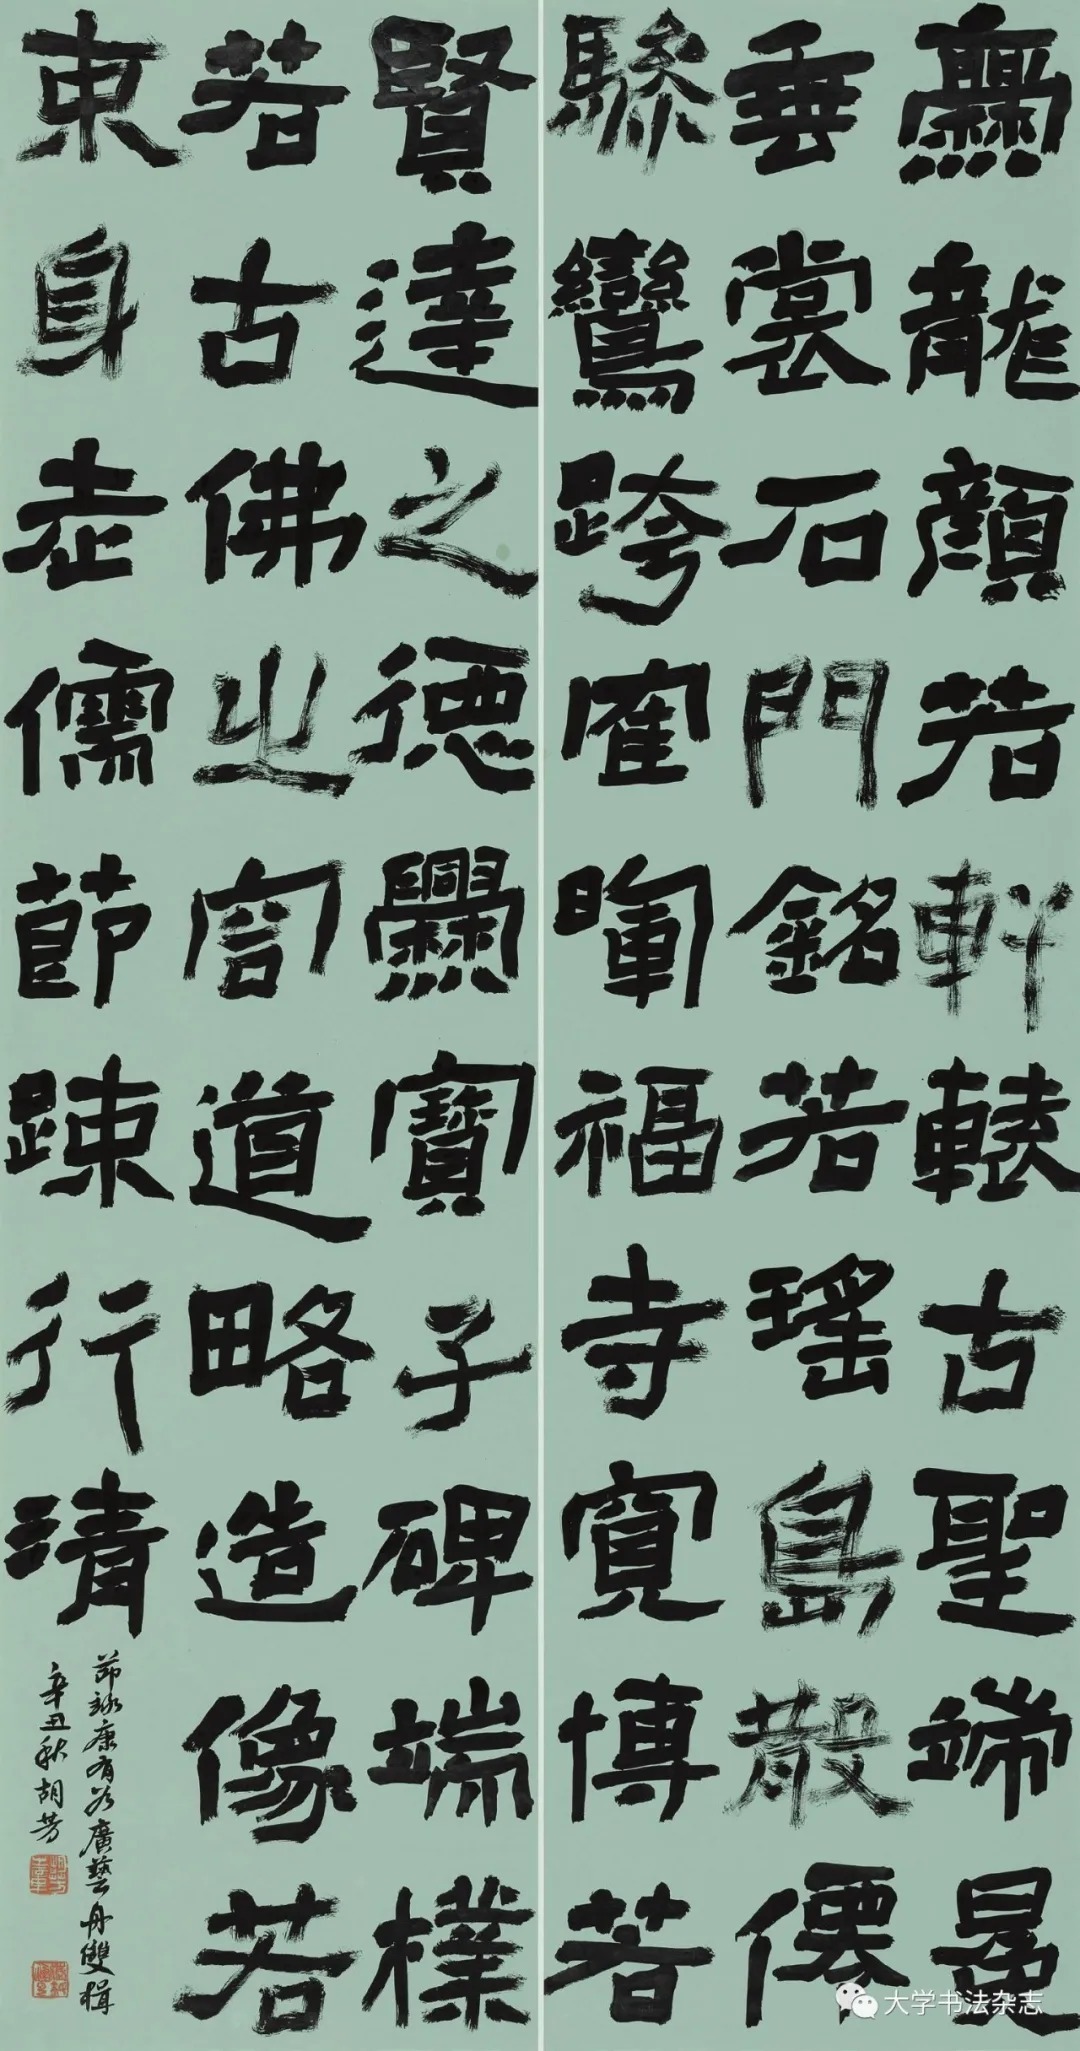 爨龍顏若軒轅古聖端冕
垂裳石門銘若瑤島散僊
驂鸞跨寉暉福寺寬博若
賢達之德爨寶子碑端樸
若古佛之容道略造像若
束身老儒節踈行清
節錄康有為廣藝舟雙楫
辛丑秋胡芳
大学书法杂志